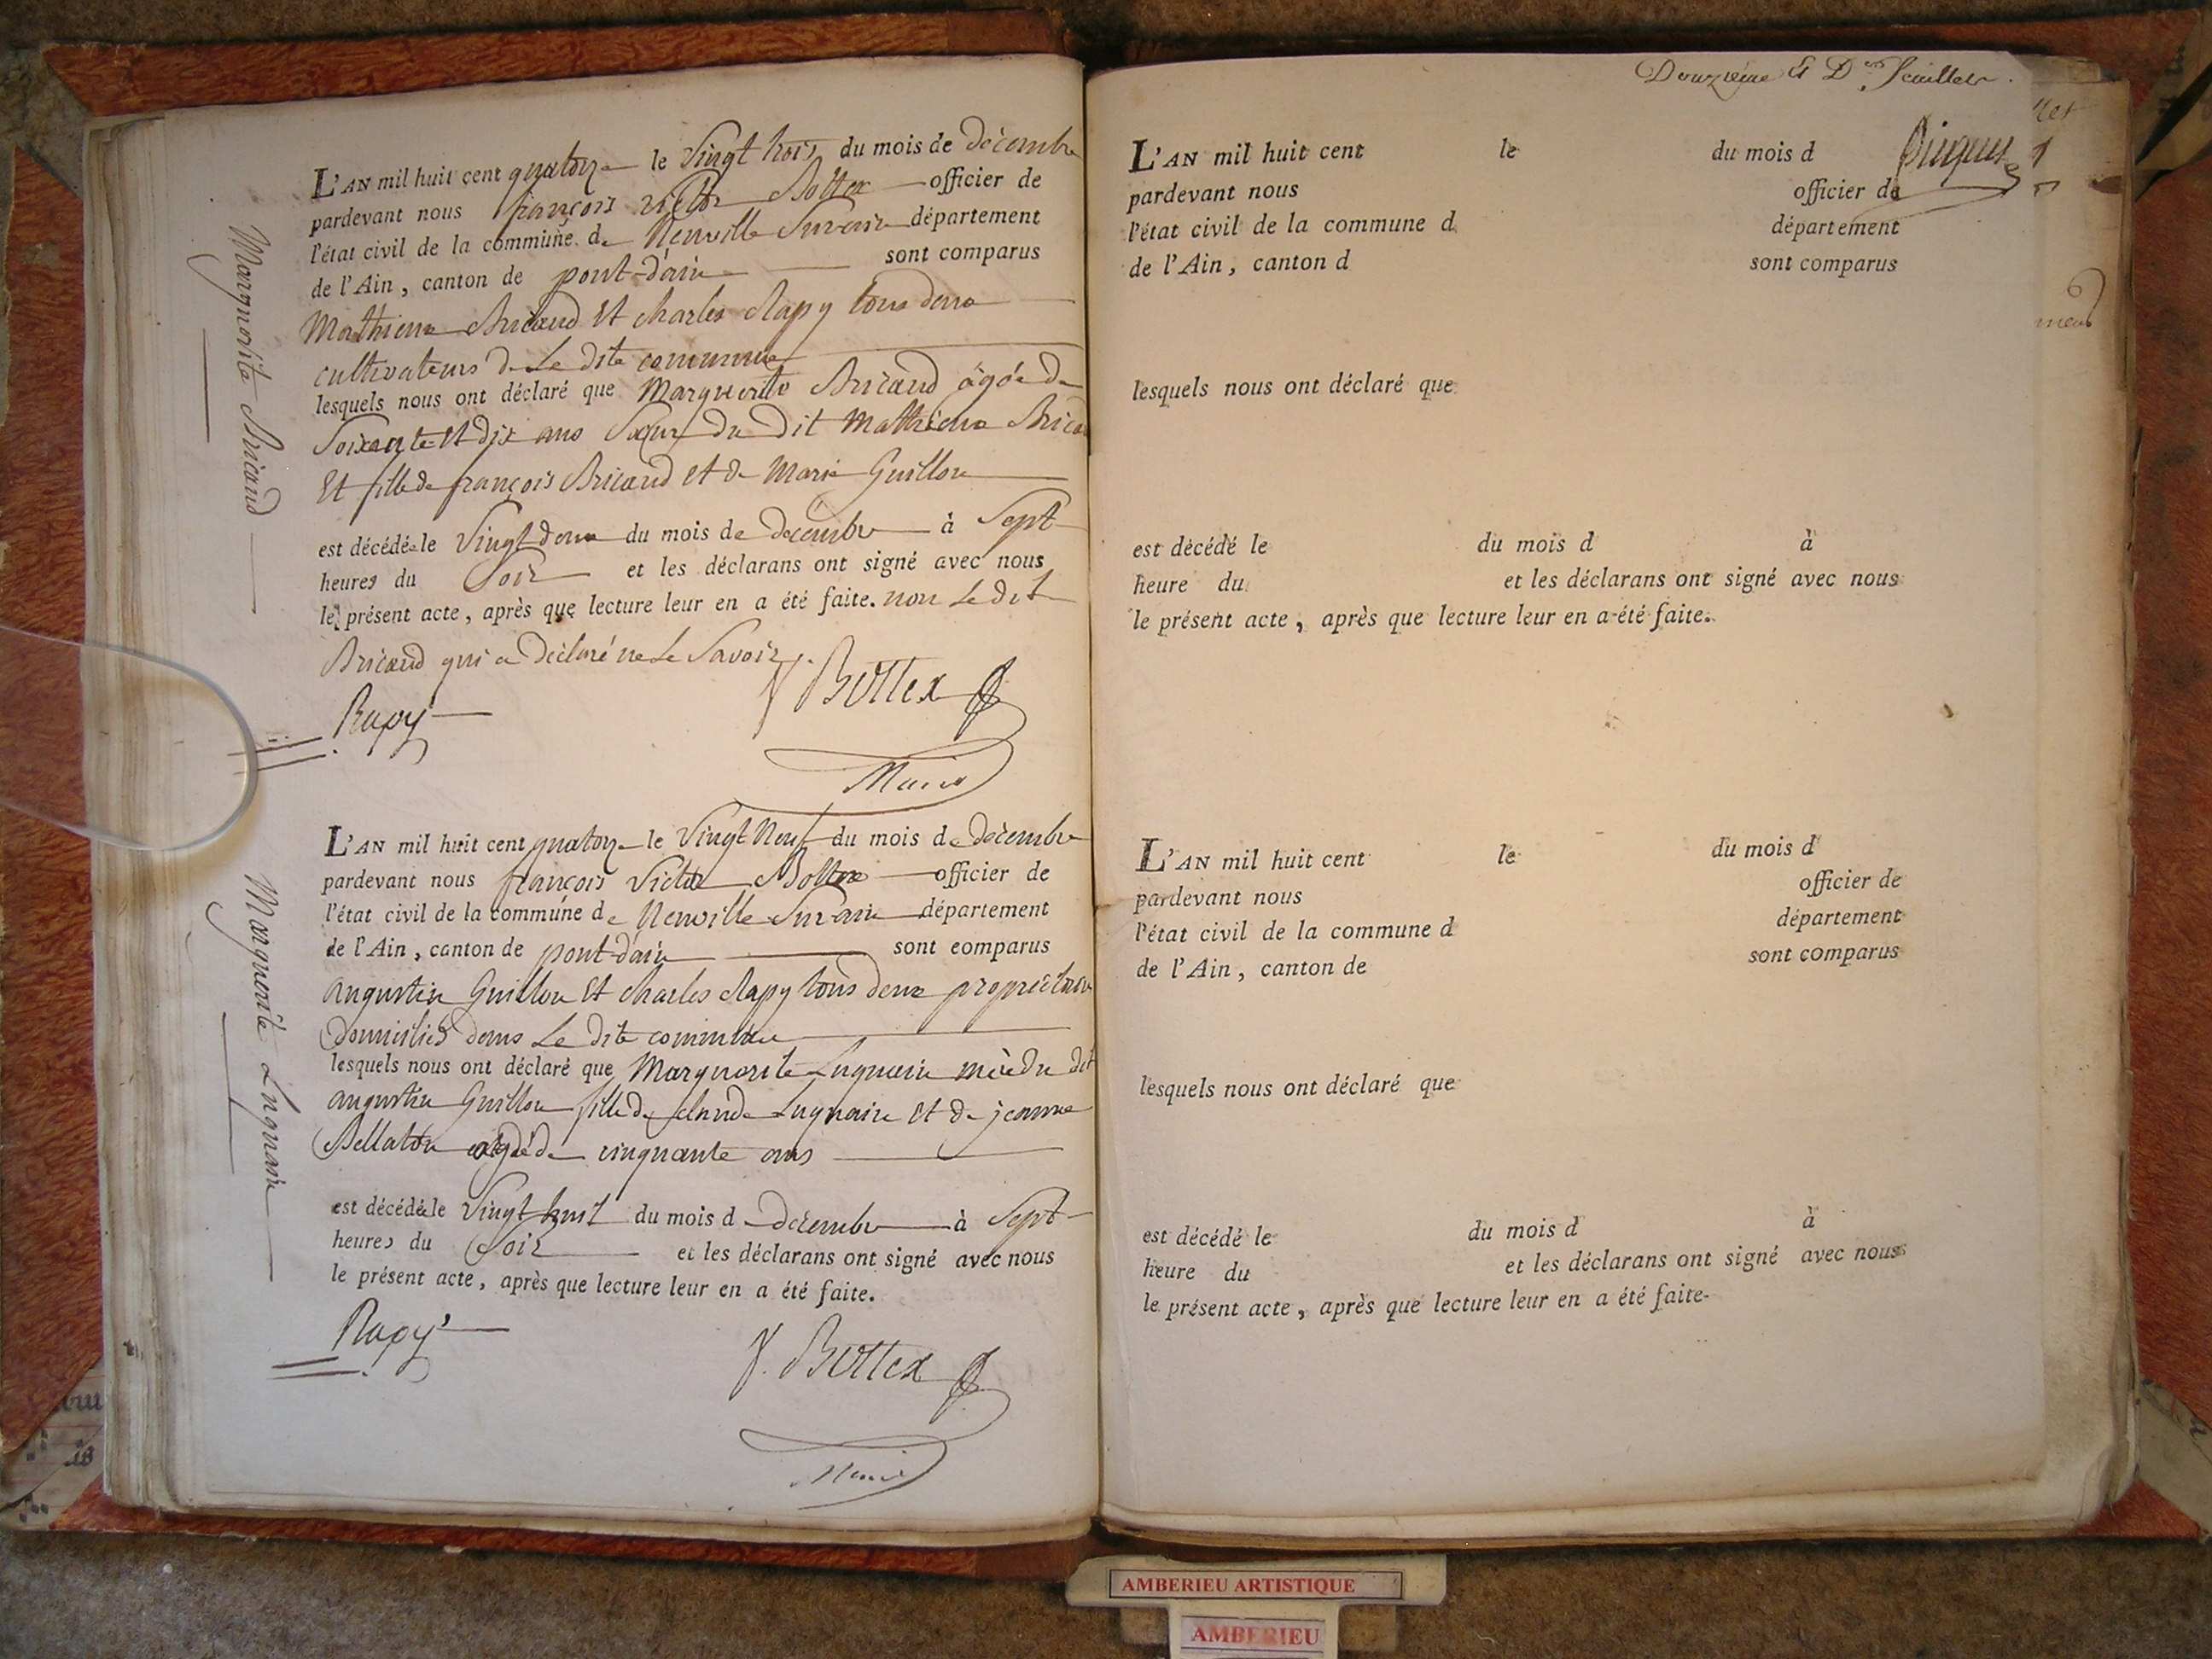 Marguerite Bricand
L'AN mil huit cent quatorze le Vingt trois du mois de décembre
pardevant nous françois victor Bottex officier de
l'état civil de la commune de Neuville Sur ain département
de l'Ain, canton de pont-d'ain sont comparus
Mathieu Bricand Et charles Rapy tous deux
cultivateurs de Le dite commune
lesquels nous ont déclaré que Marguerite Bricand âgée de
Soixante Et dix ans Sœur du dit Mathieu Brica
Et fille de françois Bricand et de Marie Guillon
est décédée le Vingt deux du mois de décembre à Sept
heures du Soir et les déclarans ont signé avec nous
le présent acte, après que lecture leur en a été faite. non Le dit
Bricand qui a déclaré ne Le Savoir.
Rapy
V Bottex
Maire
Marguerite Luquain
L'AN mil huit cent quatorze le Vingt Neuf du mois de décembre
pardevant nous françois Victor Bottex officier de
l'état civil de la commune de Neuville Sur ain département
de l'Ain, canton de pont-d'ain sont comparus
augustin Guillon Et charles Rapy tous deux proprietaire
Domiciliés dans Le dite commune
lesquels nous ont déclaré que Marguerite Luquain mère du dit
augustin Guillon fille de claude Luquain Et de jeanne
Bellaton agée de cinquante ans
est décédée le Vingt huit du mois d décembre à Sept
heures du Soir et les déclarans ont signé avec nous
le présent acte, après que lecture leur en a été faite.
Rapy
V. Bottex
Maire
Douzième Et Der feuillet.
L'AN mil huit cent le du mois d
pardevant nous officier de
l'état civil de la commune d département
de l'Ain, canton d sont comparus
lesquels nous ont déclaré que
est décédé le du mois d à
heure du et les déclarans ont signé avec nous
le présent acte, après que lecture leur en a été faite.
L'AN mil huit cent le du mois d
pardevant nous officier de
l'état civil de la commune d département
de l'Ain, canton de sont comparus
lesquels nous ont déclaré que
est décédé le du mois d à
heure du et les déclarans ont signé avec nous
le présent acte, après que lecture leur en a été faite.
AMBERIEU ARTISTIQUE
AMBERIEU